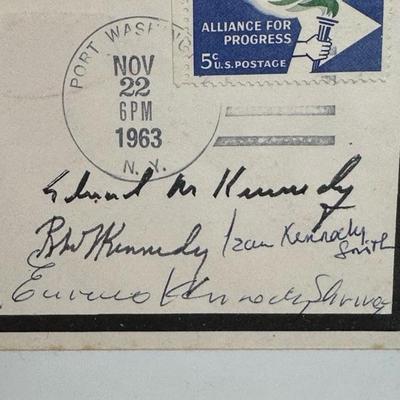 ALLIANCE FOR
PROGRESS
5c U.S. POSTAGE
PORT WASHING
NOV
22
6PM
1963
N.Y.
Edward M Kennedy
Kennedy Jean Kennedy
Smith
Eunice Kennedy Shriver